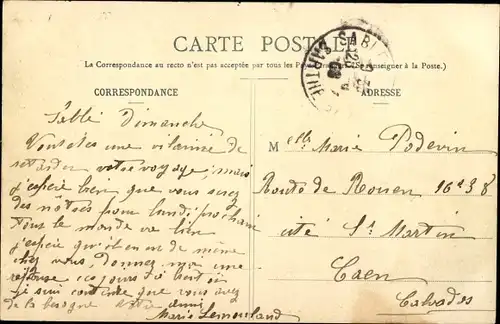 CARTE POSTALE
La Correspondance au recto n'est pas acceptée par tous les Pays (Se renseigner à la Poste.)
CORRESPONDANCE
ADRESSE
SABLÉ
SARTHE
Sablé Dimanche
Vous êtes une vilaine de
retarder votre voyage, mais
j'espère bien que vous serez
des nôtres pour lundi prochain
Tous le monde va bien
j'espère qu'il en est de même
chez vous. Donnez moi une
réponse toujours
si contente que vous avez
de la besogne votre amie
Marie Lemouland
Melle Marie Podevin
Route de Rouen 16 38
cité St Martin
Caen
Calvados